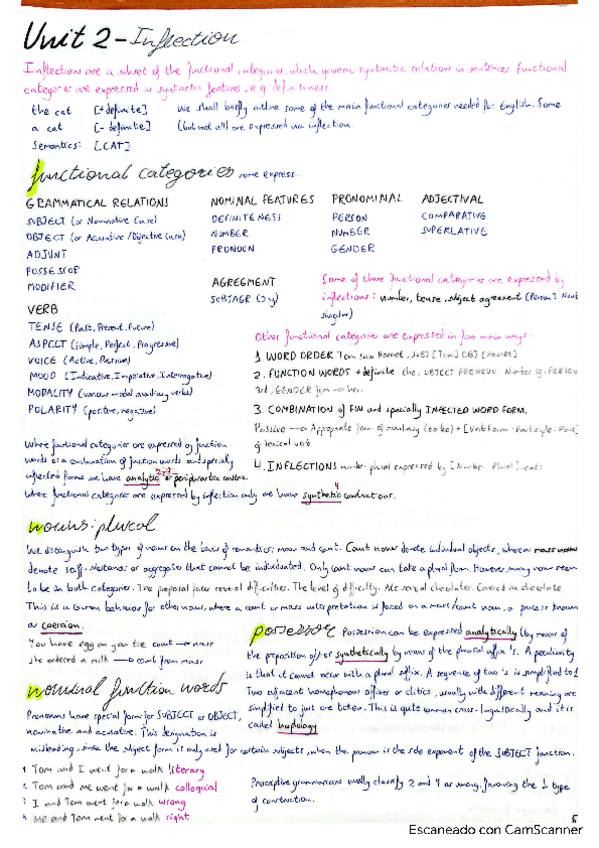 Unit 2 - Inflection
Inflections are a subset of the functional categories, which govern syntactic relations in sentences. Functional
categories are expressed as syntactic features, e.g. definiteness.
the cat [+definite] We shall briefly outline some of the main functional categories needed for English. Some
a cat [- definite] (but not all) are expressed via inflection.
Semantics: [CAT]
functional categories some express...
GRAMMATICAL RELATIONS
SUBJECT (or Nominative Case)
OBJECT (or Accusative/Objective Case)
ADJUNT
POSSESSOR
MODIFIER
NOMINAL FEATURES
DEFINITENESS
NUMBER
PRONOUN
PRONOMINAL
PERSON
NUMBER
GENDER
ADJECTIVAL
COMPARATIVE
SUPERLATIVE
AGREEMENT
SUBJAGR (3sg)
Some of these functional categories are expressed by
inflections: number, tense, subject agreement (Person:
singular)
VERB
TENSE (Past, Present, Future)
ASPECT (Simple, Perfect, Progressive)
VOICE (Active, Passive)
MOOD (Indicative, Imperative, Interrogative)
MODALITY (various modal auxiliary verbs)
POLARITY (positive, negative)
Other functional categories are expressed in four main ways:
1 WORD ORDER Tom saw Harriet, SUBJ [Tom] OBJ [Harriet]
2. FUNCTION WORDS + definite the, OBJECT PRONOUN, Number sg, PERSON
3rd, GENDER fem → her.
3. COMBINATION of FW and specially INFLECTED WORD FORM.
Passive → Appropiate form of auxiliary (to be) + [Verb Form:
of lexical verb
4. INFLECTIONS number plural expressed by [Number: Plural]. cats
Where functional categories are expressed by function
words or a combination of function words and specially
inflected forms we have analytic 2-3 or periphrastic
Where functional categories are expressed by inflection only we have synthetic 4 constructions.
nouns: plural
We distinguish two types of nouns on the basis of semantics: mass and count. Count nouns denote individual objects, whereas mass nouns
denote stuff, substances or aggregates that cannot be individuated. Only count nouns can take a plural form. However, many nouns seem
to be in both categories. The proposal faces several difficulties. The level of difficulty. Ate several chocolates. Covered in chocolate.
This is a common behavior for other nouns, where a count or mass interpretation is forced on a mass/count noun, a process known
as coercion.
You have egg on your tie count → mass
she ordered a milk → count from mass
possessor Possession can be expressed analytically (by means of
the preposition of) or synthetically by means of the phrasal affix 's. A peculiarity
is that it cannot occur with a plural suffix. A sequence of two 's is simplified to 1
Two adjacent homophonous affixes or clitics, usually with different meaning are
simplified to just one token. This is quite common cross-linguistically and it is
called haplology
nominal function words
Pronouns have special form for SUBJECT or OBJECT,
nominative and accusative. This designation is
misleading, since the subject form is only used for certain subjects, when the pronoun is the sole exponent of the SUBJECT function.
1 Tom and I went for a walk literary
2 Tom and me went for a walk colloquial
3 I and Tom went for a walk wrong
4 Me and Tom went for a walk right
Prescriptive grammarians usually classify 2 and 4 as wrong, favouring the 1 type
of construction.
Escaneado con CamScanner